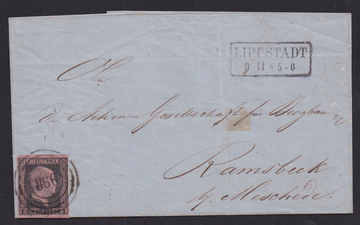 LIPPSTADT
9 11 * 5-6
die Actien-Gesellschaft für Bergbau
Ramsbeck
b. Meschede
FREIMARKE